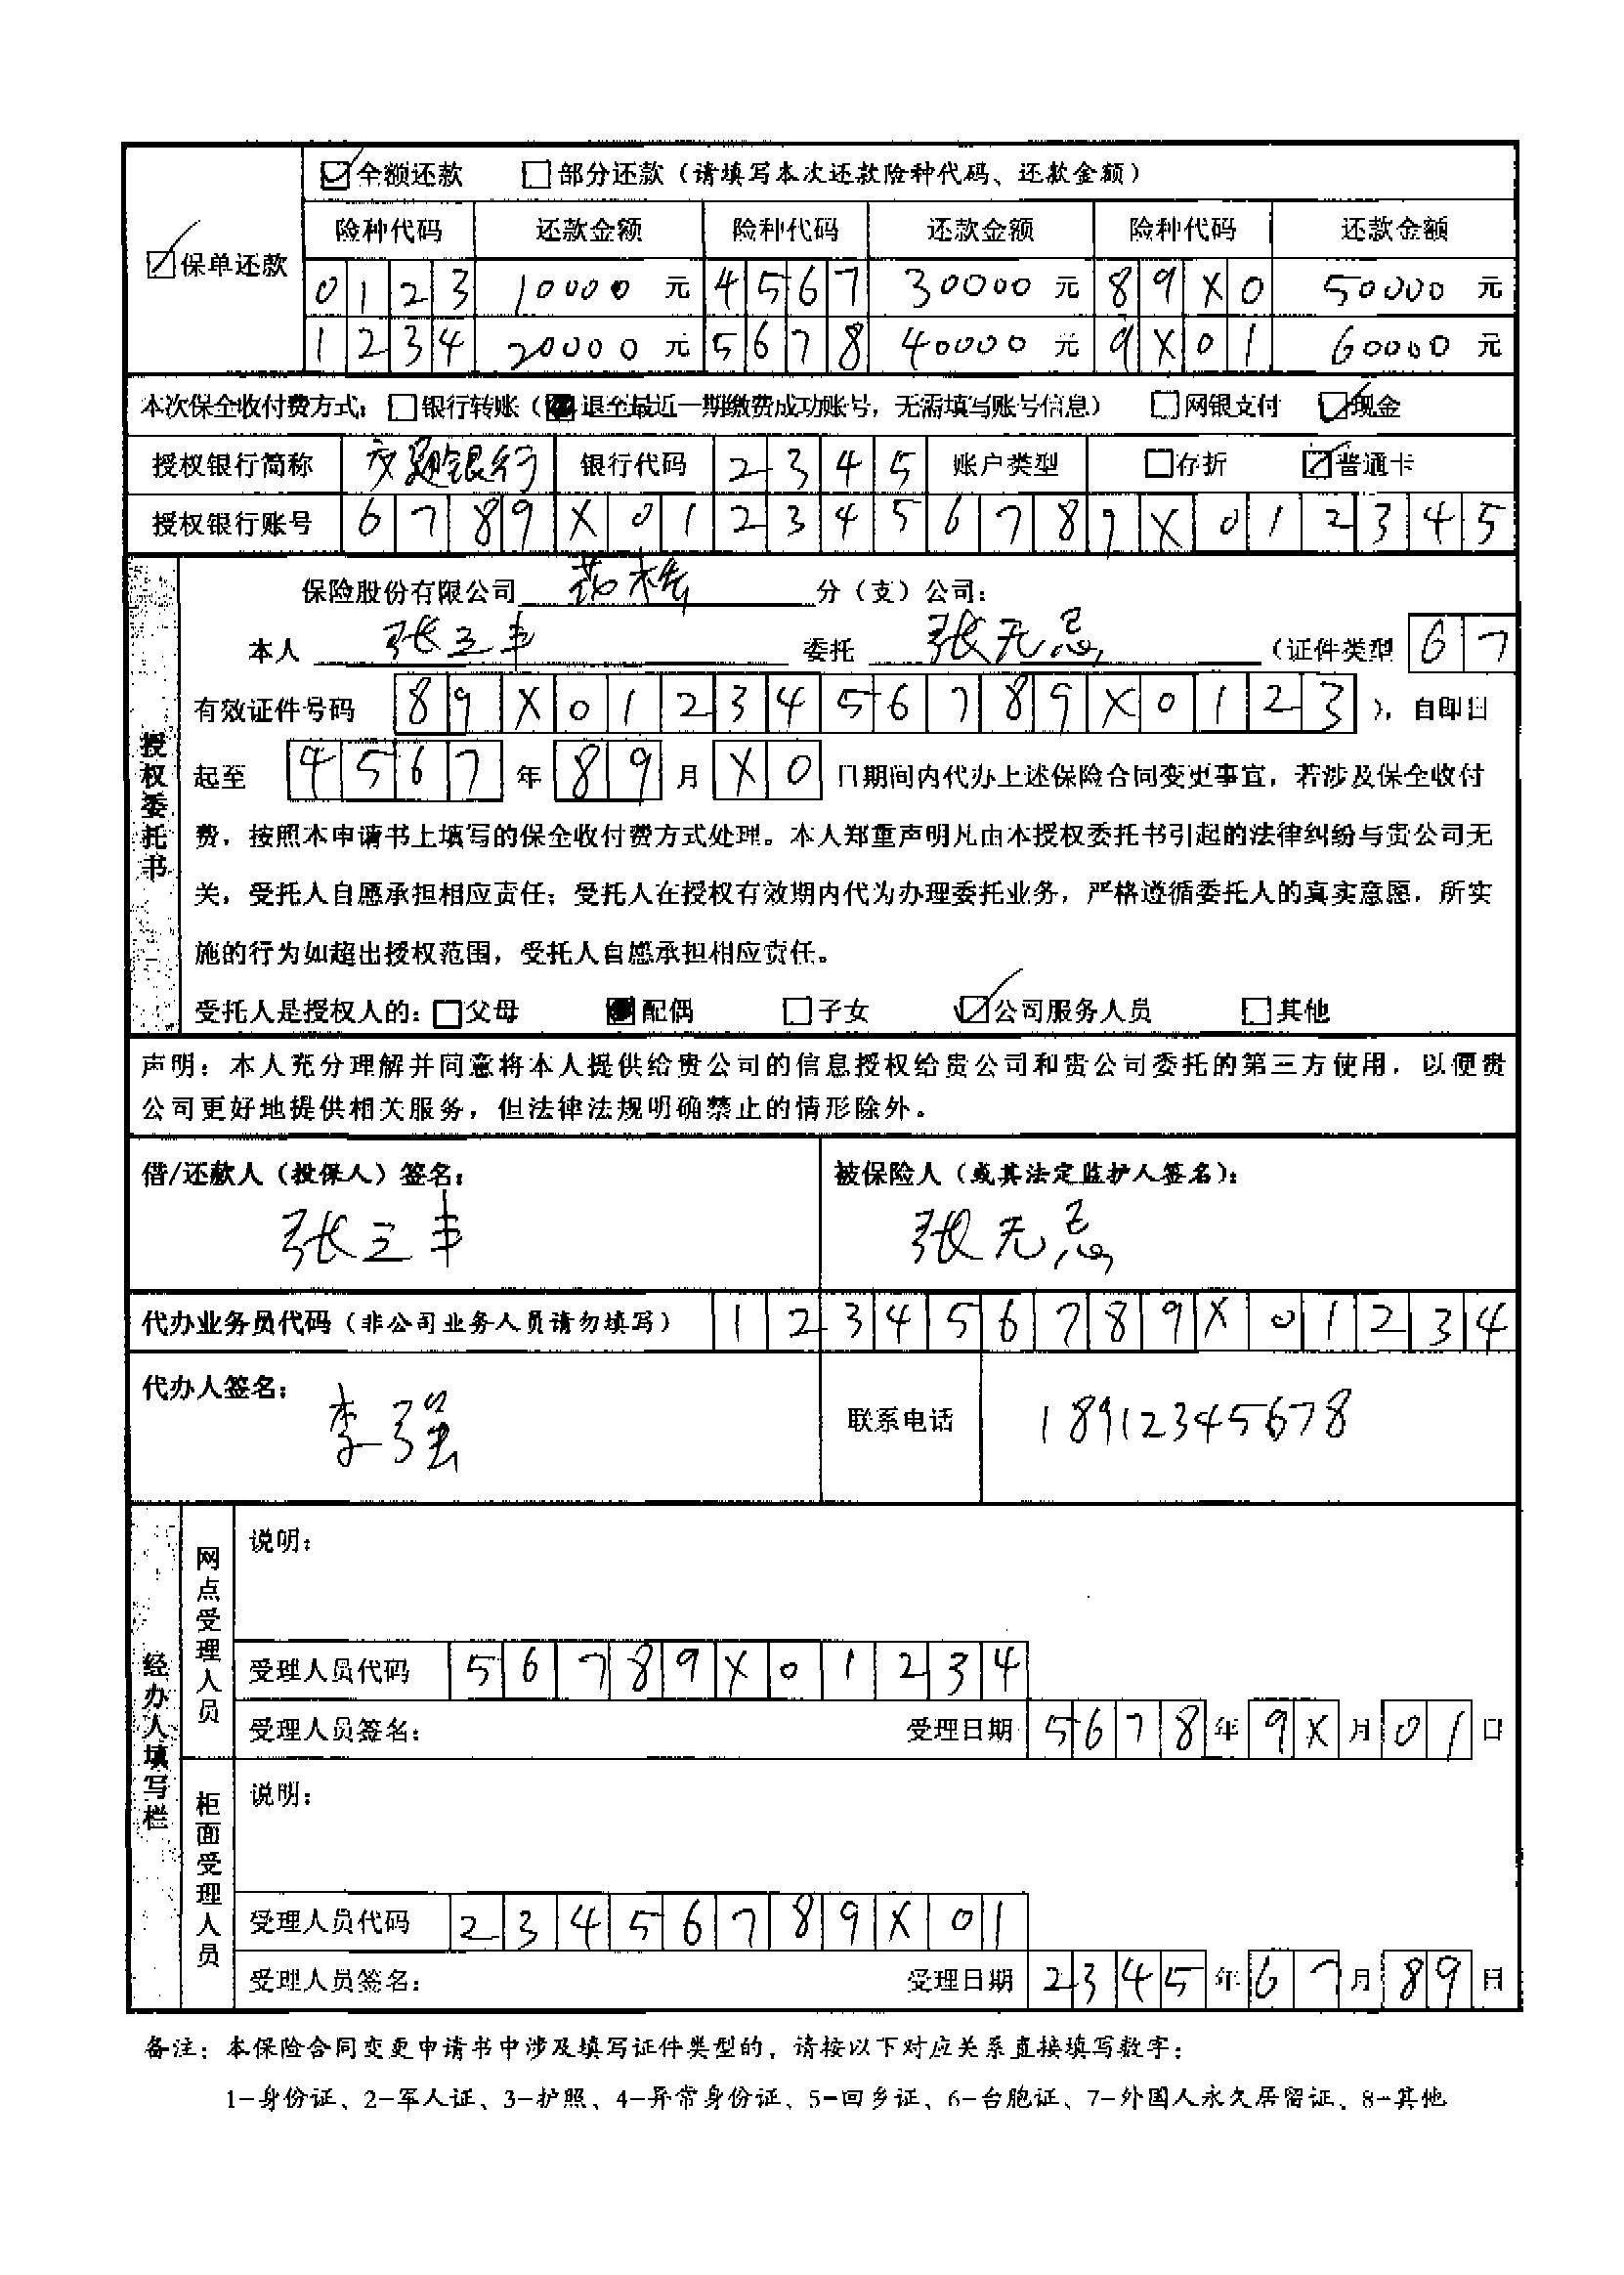 ☑全额还款 □部分还款（请填写本次还款险种代码、还款金额）
☑保单还款
险种代码 还款金额 险种代码 还款金额 险种代码 还款金额
0123 10000 元 4567 30000 元 89X0 50000 元
1234 20000 元 5678 40000 元 9X01 60000 元
本次保全收付费方式：□银行转账（■退至最近一期缴费成功账号，无需填写账号信息） □网银支付 ☑现金
授权银行简称 银行 银行代码 2345 账户类型 □存折 ☑普通卡
授权银行账号 6789X0123456789X012345
授权委托书
保险股份有限公司 分（支）公司：
本人 张三丰 委托 张无忌 （证件类型 67
有效证件号码 89X0123456789X0123 ），自即日
起至 4567 年 89 月 X0 日期间内代办上述保险合同变更事宜，若涉及保全收付
费，按照本申请书上填写的保全收付费方式处理。本人郑重声明凡由本授权委托书引起的法律纠纷与贵公司无
关，受托人自愿承担相应责任；受托人在授权有效期内代为办理委托业务，严格遵循委托人的真实意愿，所实
施的行为如超出授权范围，受托人自愿承担相应责任。
受托人是授权人的：□父母 ■配偶 □子女 ☑公司服务人员 □其他
声明：本人充分理解并同意将本人提供给贵公司的信息授权给贵公司和贵公司委托的第三方使用，以便贵
公司更好地提供相关服务，但法律法规明确禁止的情形除外。
借/还款人（投保人）签名： 被保险人（或其法定监护人签名）：
张三丰 张无忌
代办业务员代码（非公司业务人员请勿填写） 123456789X01234
代办人签名： 李子强 联系电话 18912345678
经办人填写栏
网点受理人员
说明：
受理人员代码 56789X01234
受理人员签名： 受理日期 5678 年 9X 月 01 日
柜面受理人员
说明：
受理人员代码 23456789X01
受理人员签名： 受理日期 2345 年 67 月 89 日
备注：本保险合同变更申请书中涉及填写证件类型的，请按以下对应关系直接填写数字：
1-身份证、2-军人证、3-护照、4-异常身份证、5-回乡证、6-台胞证、7-外国人永久居留证、8-其他